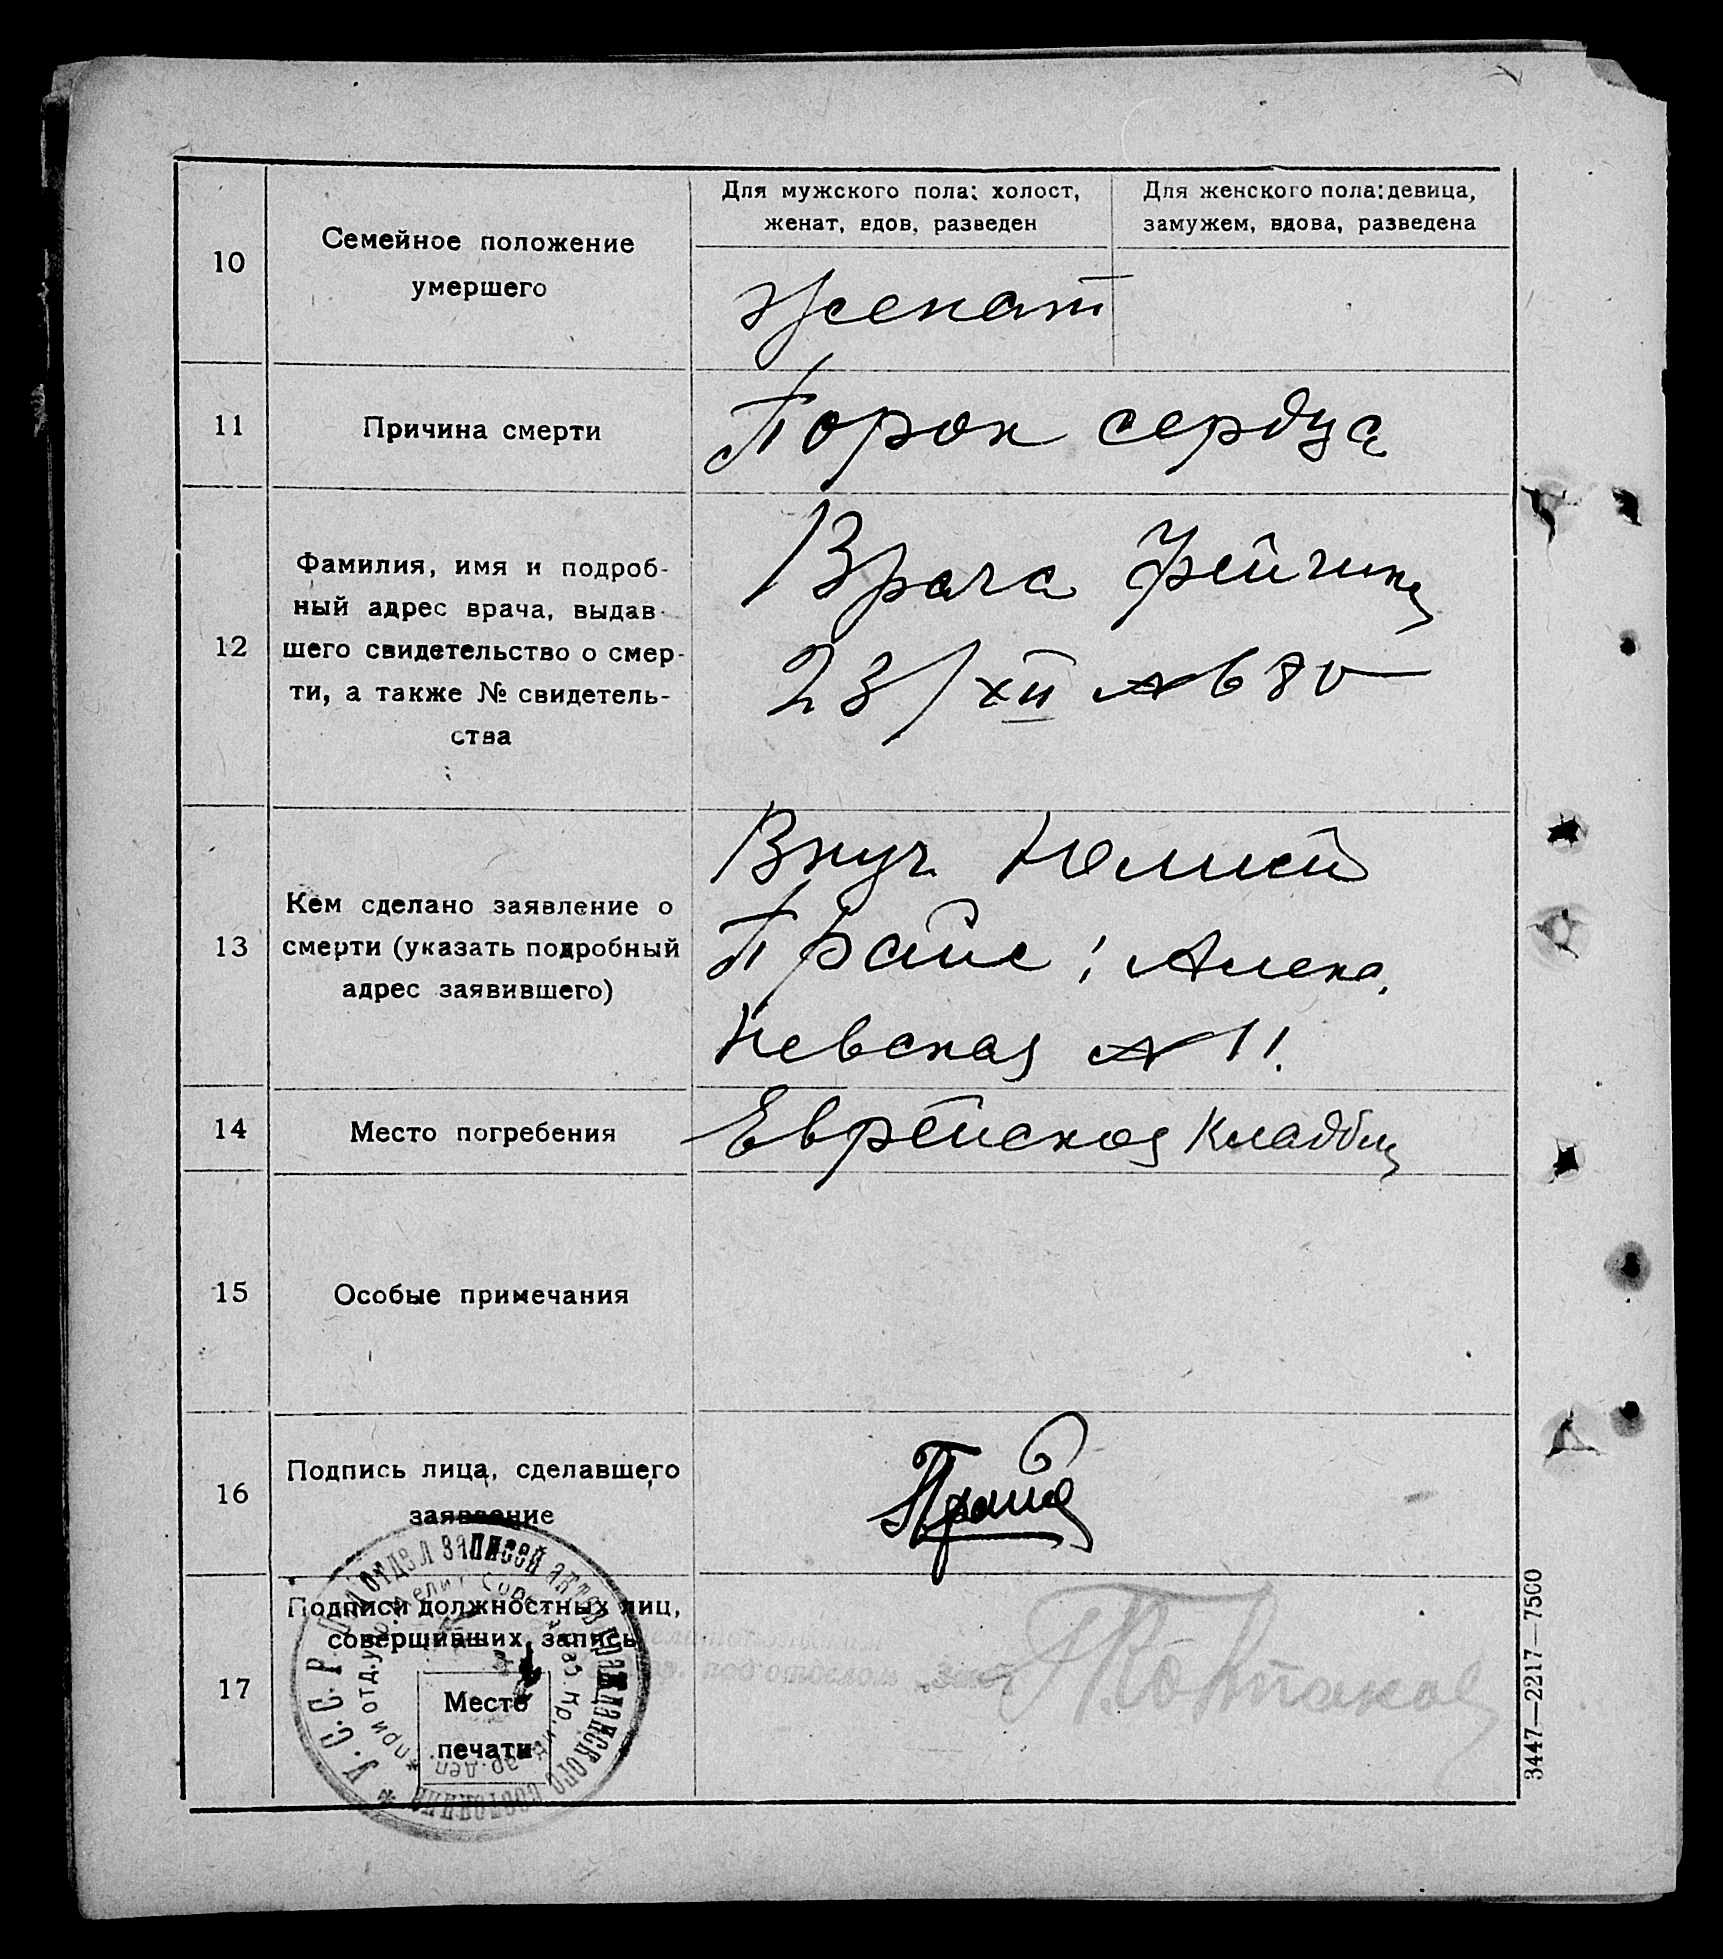 Для мужского пола: холост,
женат, вдов, разведен
Для женского пола: девица,
замужем, вдова, разведена
10
Семейное положение
умершего
женат
11
Причина смерти
Порок сердца
12
Фамилия, имя и подроб-
ный адрес врача, выдав-
шего свидетельство о смер-
ти, а также № свидетель-
ства
Врача
23/XII № 680
13
Кем сделано заявление о
смерти (указать подробный
адрес заявившего)
Внуч.
Прайс, Алекс.
Невская № 11.
14
Место погребения
Еврейская кладбищ
15
Особые примечания
16
Подпись лица, сделавшего
заявление
Прайс
17
Подписи должностных лиц,
совершивших запись
Место
печати
У.С.С.Р. отдел записей актов гражданского состояния
3447—2217—7500